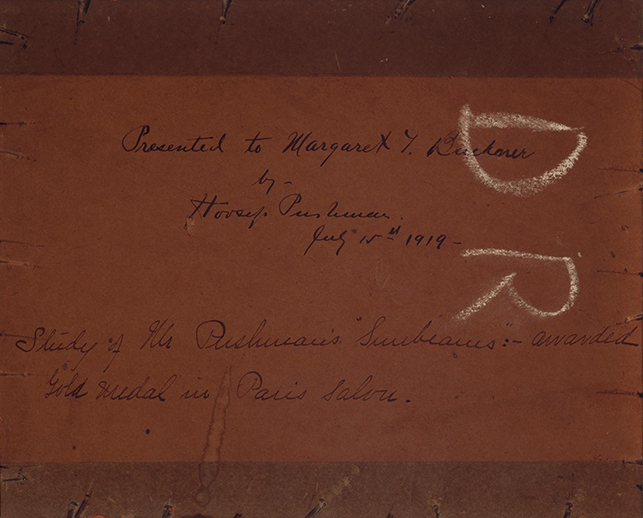 Presented to Margaret T. Buckner
by -
Hovsep Pushman.
July 15st 1919 -
Study of Mr Pushman's "Sunbeams":- awarded
Gold medal in Paris Salon.
D
R